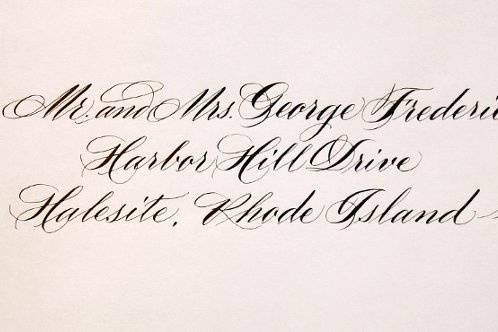 Mr. and Mrs. George Frederi
Harbor Hill Drive
Halesite, Rhode Island